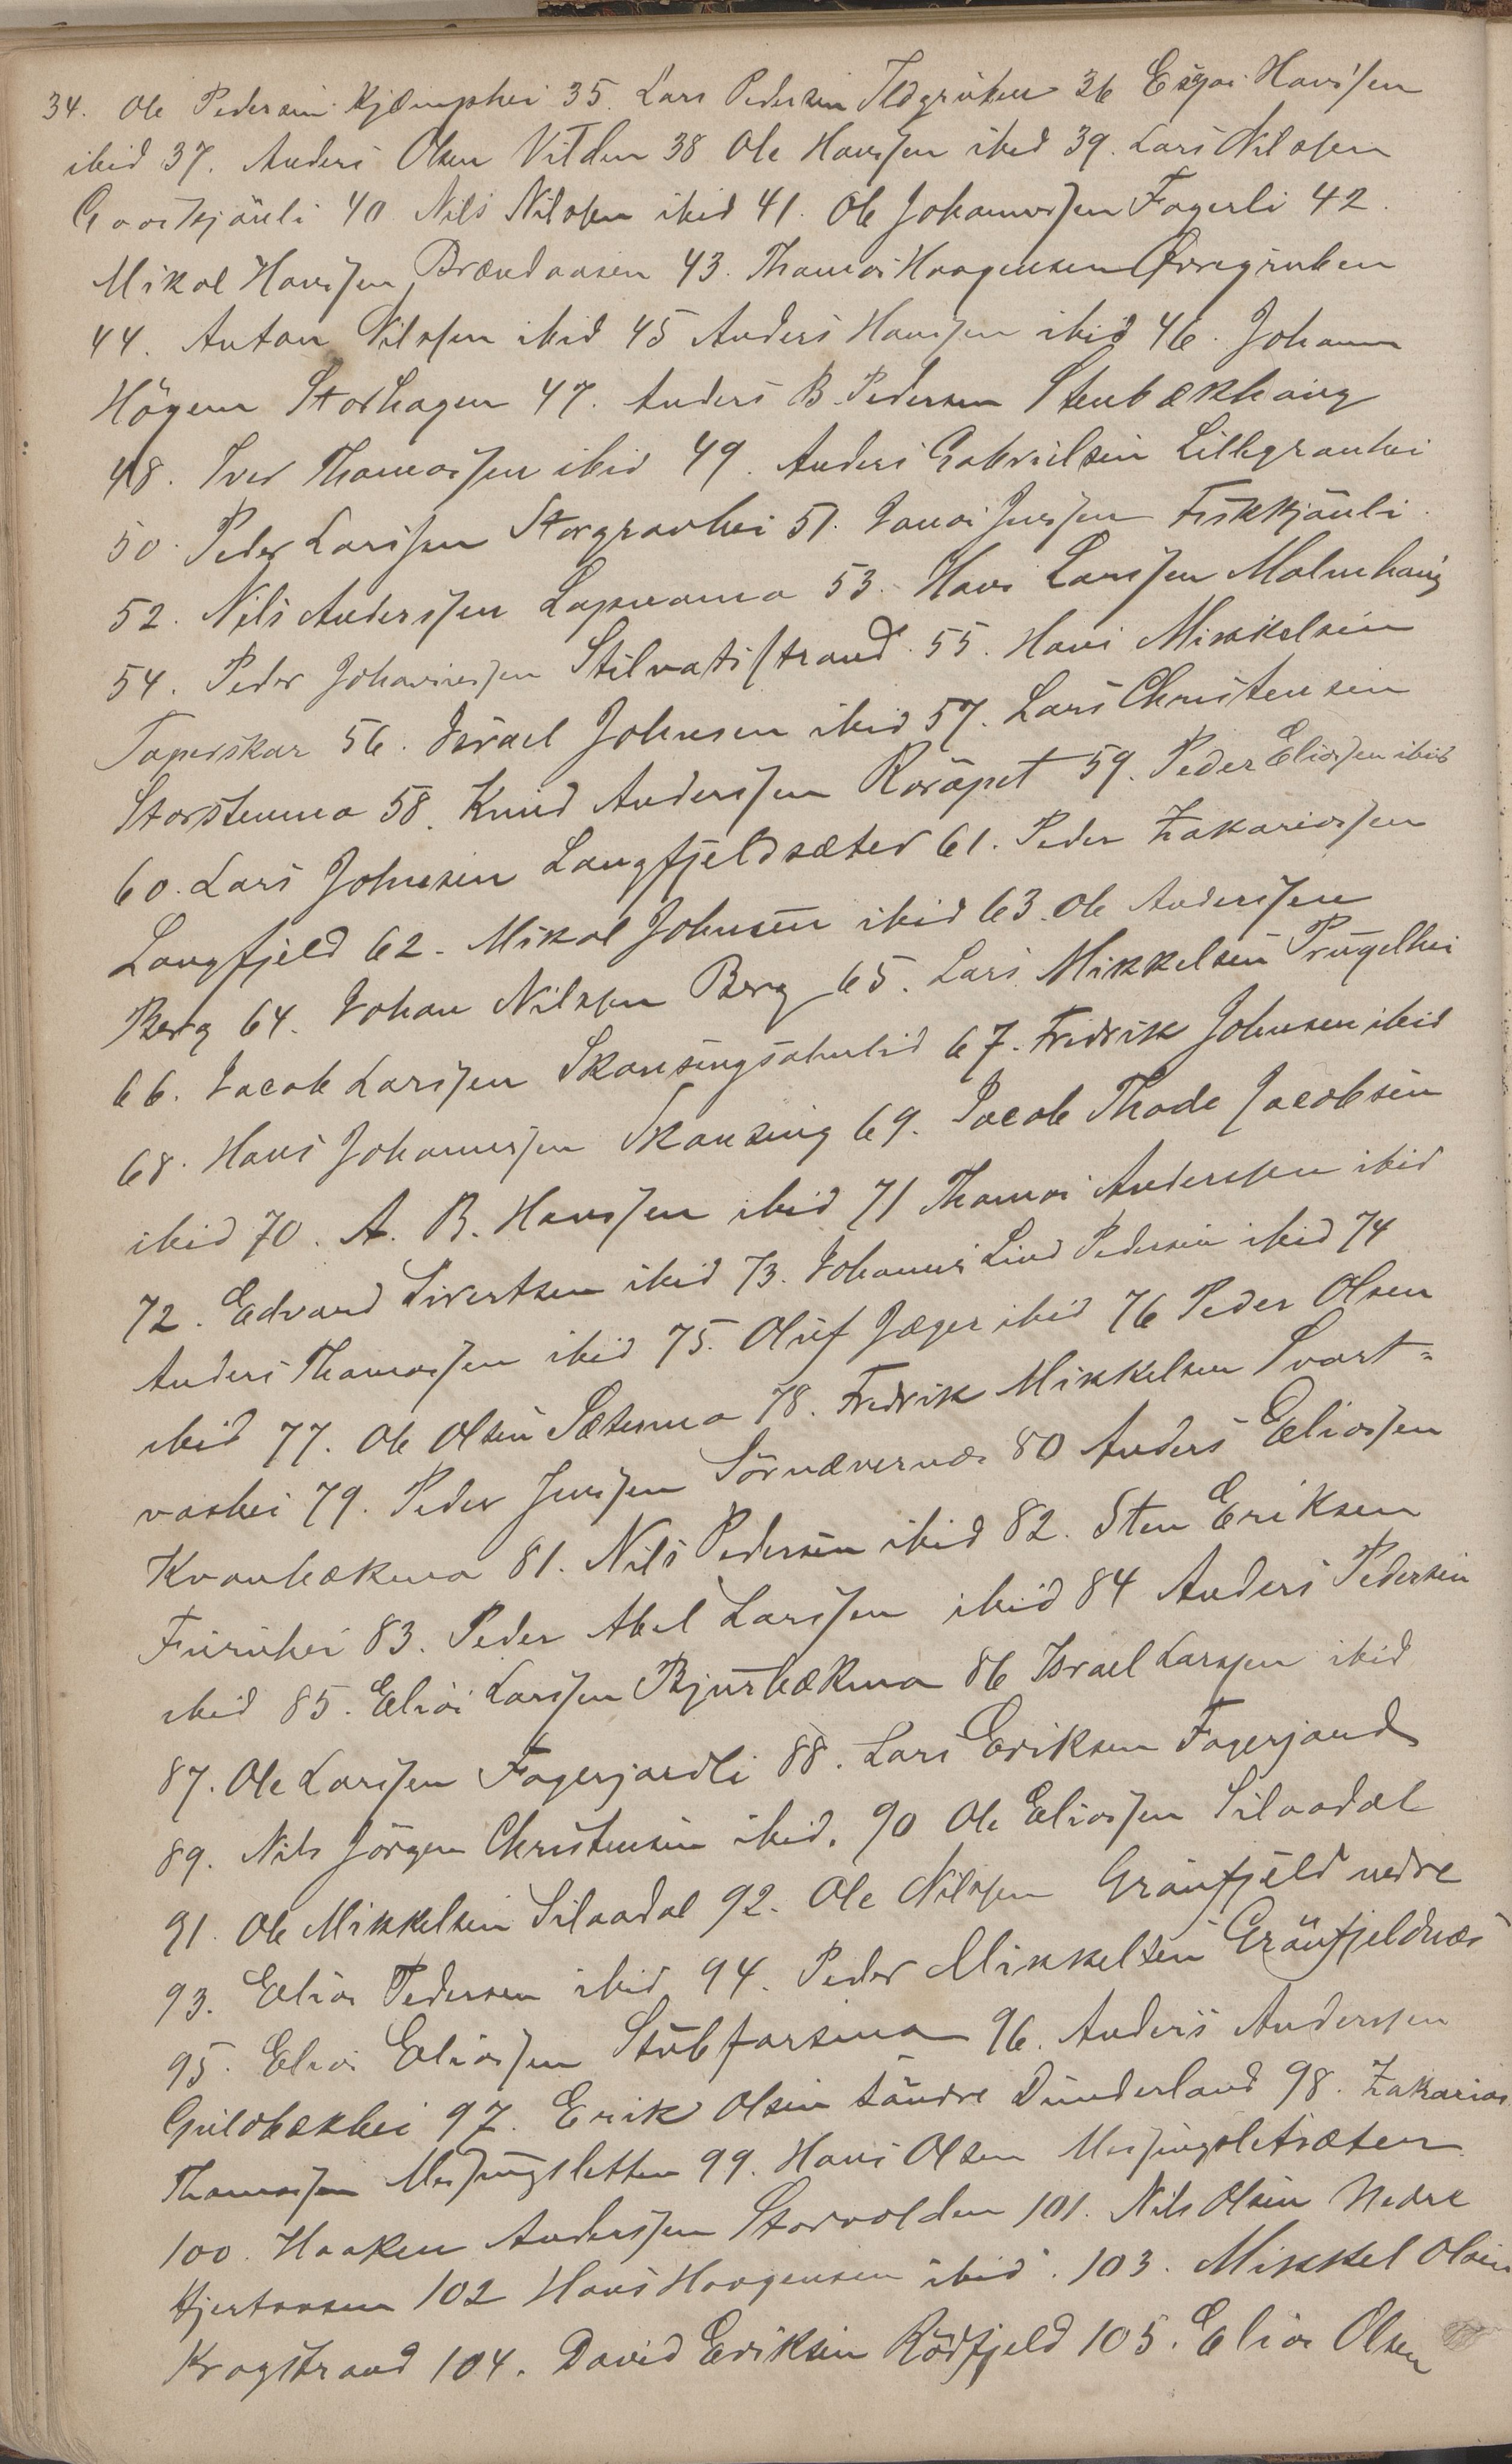 34. Ole Pedersen Kjæmphei 35. Lars Pedersen Ildgruben 36 Esaias Hanssen
ibid 37. Anders Olsen Vitden 38 Ole Hanssen ibid 39. Lars Nilssen
Gaaskjønli 40 Nils Nilssen ibid 41. Ole Johannessen Fagerli 42.
Mikal Hanssen Brændaasen 43. Thomas Haagensen Øvregruben
44. Anton Nilssen ibid 45 Anders Hanssen ibid 46. Johann
Högem Storhagen 47. Anders B. Pedersen Stenbækhaug
48. Iver Thomassen ibid 49. Anders Gabrielsen Lillegranhei
50. Peder Larssen Storgranhei 51. Jonas Jenssen Fiskkjönli.
52. Nils Anderssen Lapmoma 53. Hans Larssen Malmhaug
54. Peder Johannessen Stilvatsstrand. 55. Hans Mikkelsen
Taperskar 56. Israel Johnsen ibid 57. Lars Christensen
Storstenmo 58. Knud Anderssen Rosåpet 59. Peder Eliassen ibid
60. Lars Johnsen Langfjeldsæter 61. Peder Zakariassen
Langfjeld 62. Mikal Johnsen ibid 63. Ole Anderssen
Berg 64. Johan Nilssen Berg 65. Lars Mikkelsen Prügelhei
66. Jacob Larssen Skansingsølulid 67. Fredrik Johnsen ibid
68. Hans Johannessen Skansing 69. Jacob Thode Jacobsen
ibid 70. A. B. Hanssen ibid 71 Thomas Anderssen ibid
72. Edvard Sivertsen ibid 73. Johannes Lind Pedersen ibid 74
Anders Thomassen ibid 75. Oluf Jæger ibid 76 Peder Olsen
ibid 77. Ole Olsen Sætermo 78. Fredrik Mikkelsen Svart=
vashei 79. Peder Jenssen Sörnævernæs 80 Anders Eliassen
Kvanbækmo 81. Nils Pedersen ibid 82. Sten Eriksen
Furuhei 83. Peder Abel Larssen ibid 84 Anders Pedersen
ibid 85. Elias Larssen Bjurbækmo 86 Israel Larssen ibid
87. Ole Larssen Fagerjordli 88. Lars Eriksen Fagerjord
89. Nils Jörgen Christensen ibid. 90 Ole Eliassen Silaadal
91. Ole Mikkelsen Silaadal 92. Ole Nilssen Grönfjeld nedre
93. Elias Pedersen ibid 94. Peder Mikkelsen Grönfjeldnæs
95. Elias Eliassen Stubforsmo 96. Anders Anderssen
Guldbækhei 97. Erik Olsen söndre Dunderland 98. Zakarias
Thomassen Messingsletten 99. Hans Olsen Messingsletsæter
100. Haaken Anderssen Storvolden 101. Nils Olsen Nedre
Hjertaasen 102 Hans Haagensen ibid. 103. Mikkel Olsen
Kragstrand 104. David Eriksen Rödfjeld 105. Elias Olsen